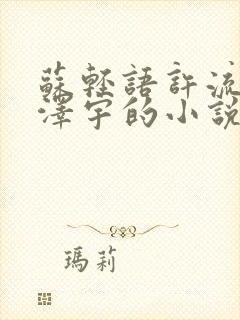 蘇輕語許流
澤宇的小說
瑪莉